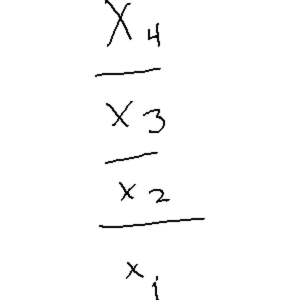 X4
x3
x2
x1